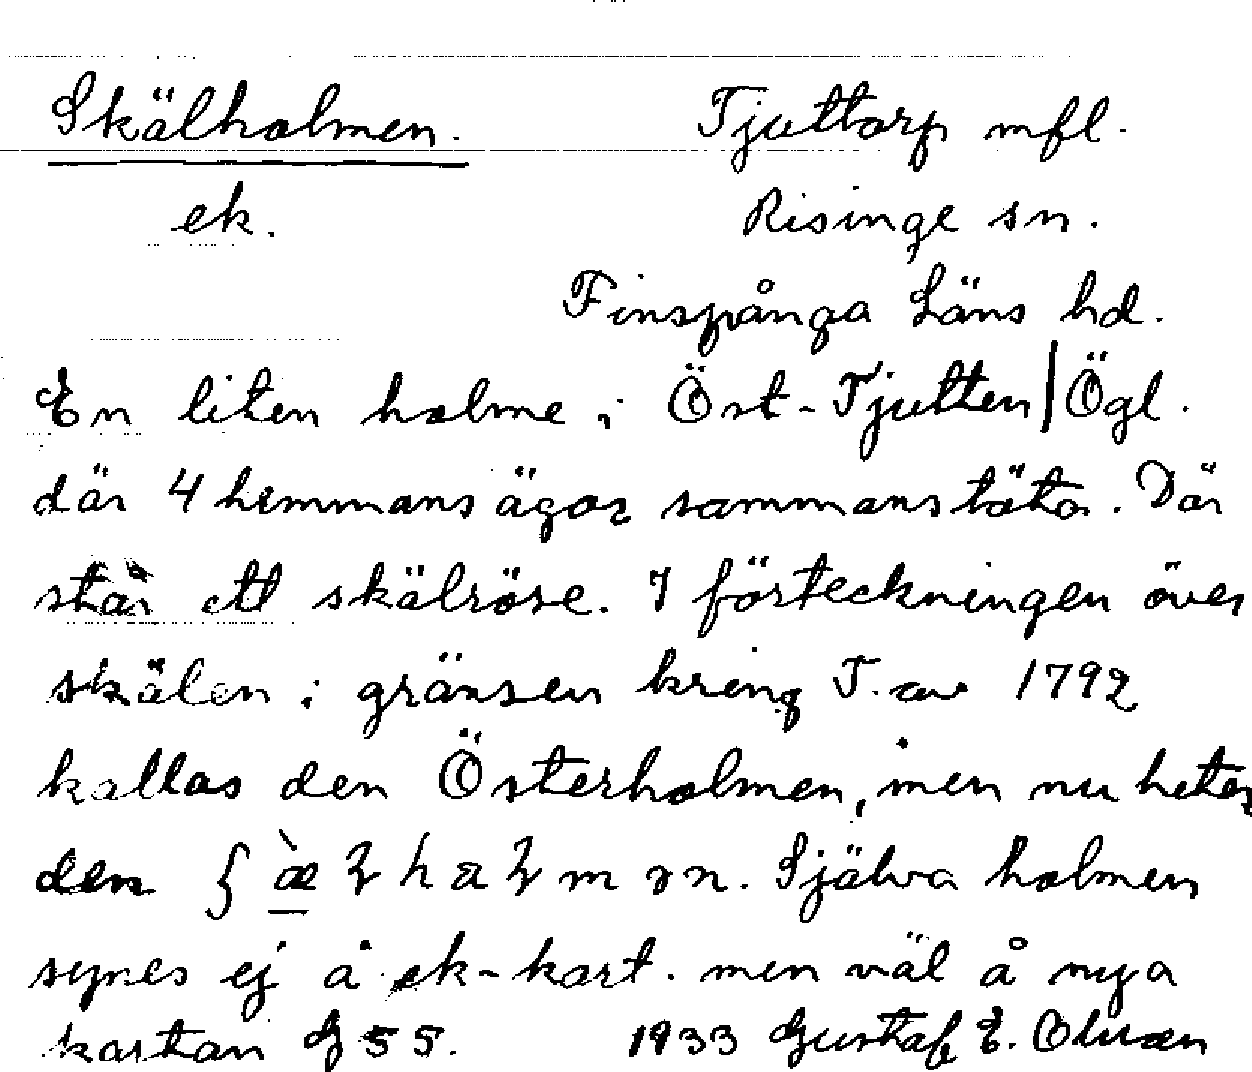 Skälholmen. Tjuttorp mfl.
ek. Risinge sn.
Finspånga Läns hd.
En liten holme i Öst-Tjutten/Ögl.
där 4 hemmans ägor sammanstöta. Där
står ett skälröse. I förteckningen över
skälen i gränsen kring T. av 1792
kallas den Österholmen, men nu heter
den Själva holmen
synes ej å ek-kart. men väl å nya
kartan G 55. 1933 Gustaf E.